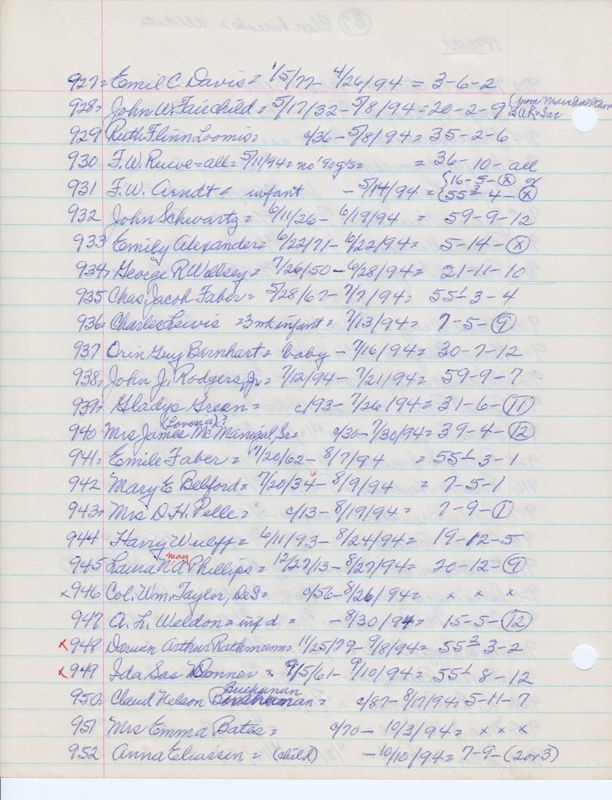 927= Emil C. Davis = 1/5/77 - 4/26/94 = 3-6-2
928= John W. Fairchild = 5/17/32 - 5/8/94 = 20-2-9 (from
929 Ruth Flinn Loomis = c/36 - 5/8/94 = 35-2-6
930 F.W. Reeve = all = 5/11/94 = no = 36-10-all
931 F.W. Arndt = infant - 5/14/94 = {16-5-(x) or 55²-4-(x)
932 John Schwartz = 6/11/26 - 6/19/94 = 59-9-12
933 Emily Alexander = 6/22/71 - 6/22/94 = 5-14-(x)
934 George R. Wellsey = 7/26/50 - 6/28/94 = 21-11-10
935 Chas. Jacob Faber = 5/28/67 - 7/7/94 = 55¹-3-4
936 Charles Lewis = 3 m infant = 7/13/94 = 7-5-(9)
937 Orin Guy Barnhart = baby - 7/16/94 = 30-7-12
938 John J. Rodgers, Jr = 7/12/94 - 7/21/94 = 59-9-7
939 Gladys Green = c/93 - 7/26/94 = 31-6-(11)
940 Mrs James (Lovona)? McManigal, Sr = c/30 - 7/30/94 = 39-4-(12)
941 Emile Faber = 7/20/62 - 8/7/94 = 55¹-3-1
942 Mary E Belford = 7/20/34 - 8/9/94 = 7-5-1
943 Mrs D.H. Pelle = c/13 - 8/19/94 = 7-9-(1)
944 Harry Wulff = 6/11/93 - 8/24/94 = 19-12-5
945 Laura may Phillips = 12/27/13 - 8/27/94 = 20-12-(9)
x 946 Col. Wm. Taylor, DeS = c/56 - 8/26/94 = x x x
947 A. L. Weldon = inf d. - 8/30/94 = 15-5-(12)
x 948 Dorien Arthur Rathmann = 11/25/79 - 9/8/94 = 55²-3-2
x 949 Ida Sas Donner = 9/5/61 - 9/10/94 = 55¹-8-12
950 Claud Nelson Buchanan = c/87 - 8/17/94 = 5-11-7
951 Mrs Emma Bates = c/70 - 10/3/94 = x x x
952 Anna Eliassin = (child) - 10/10/94 = 7-9-(2 or 3)